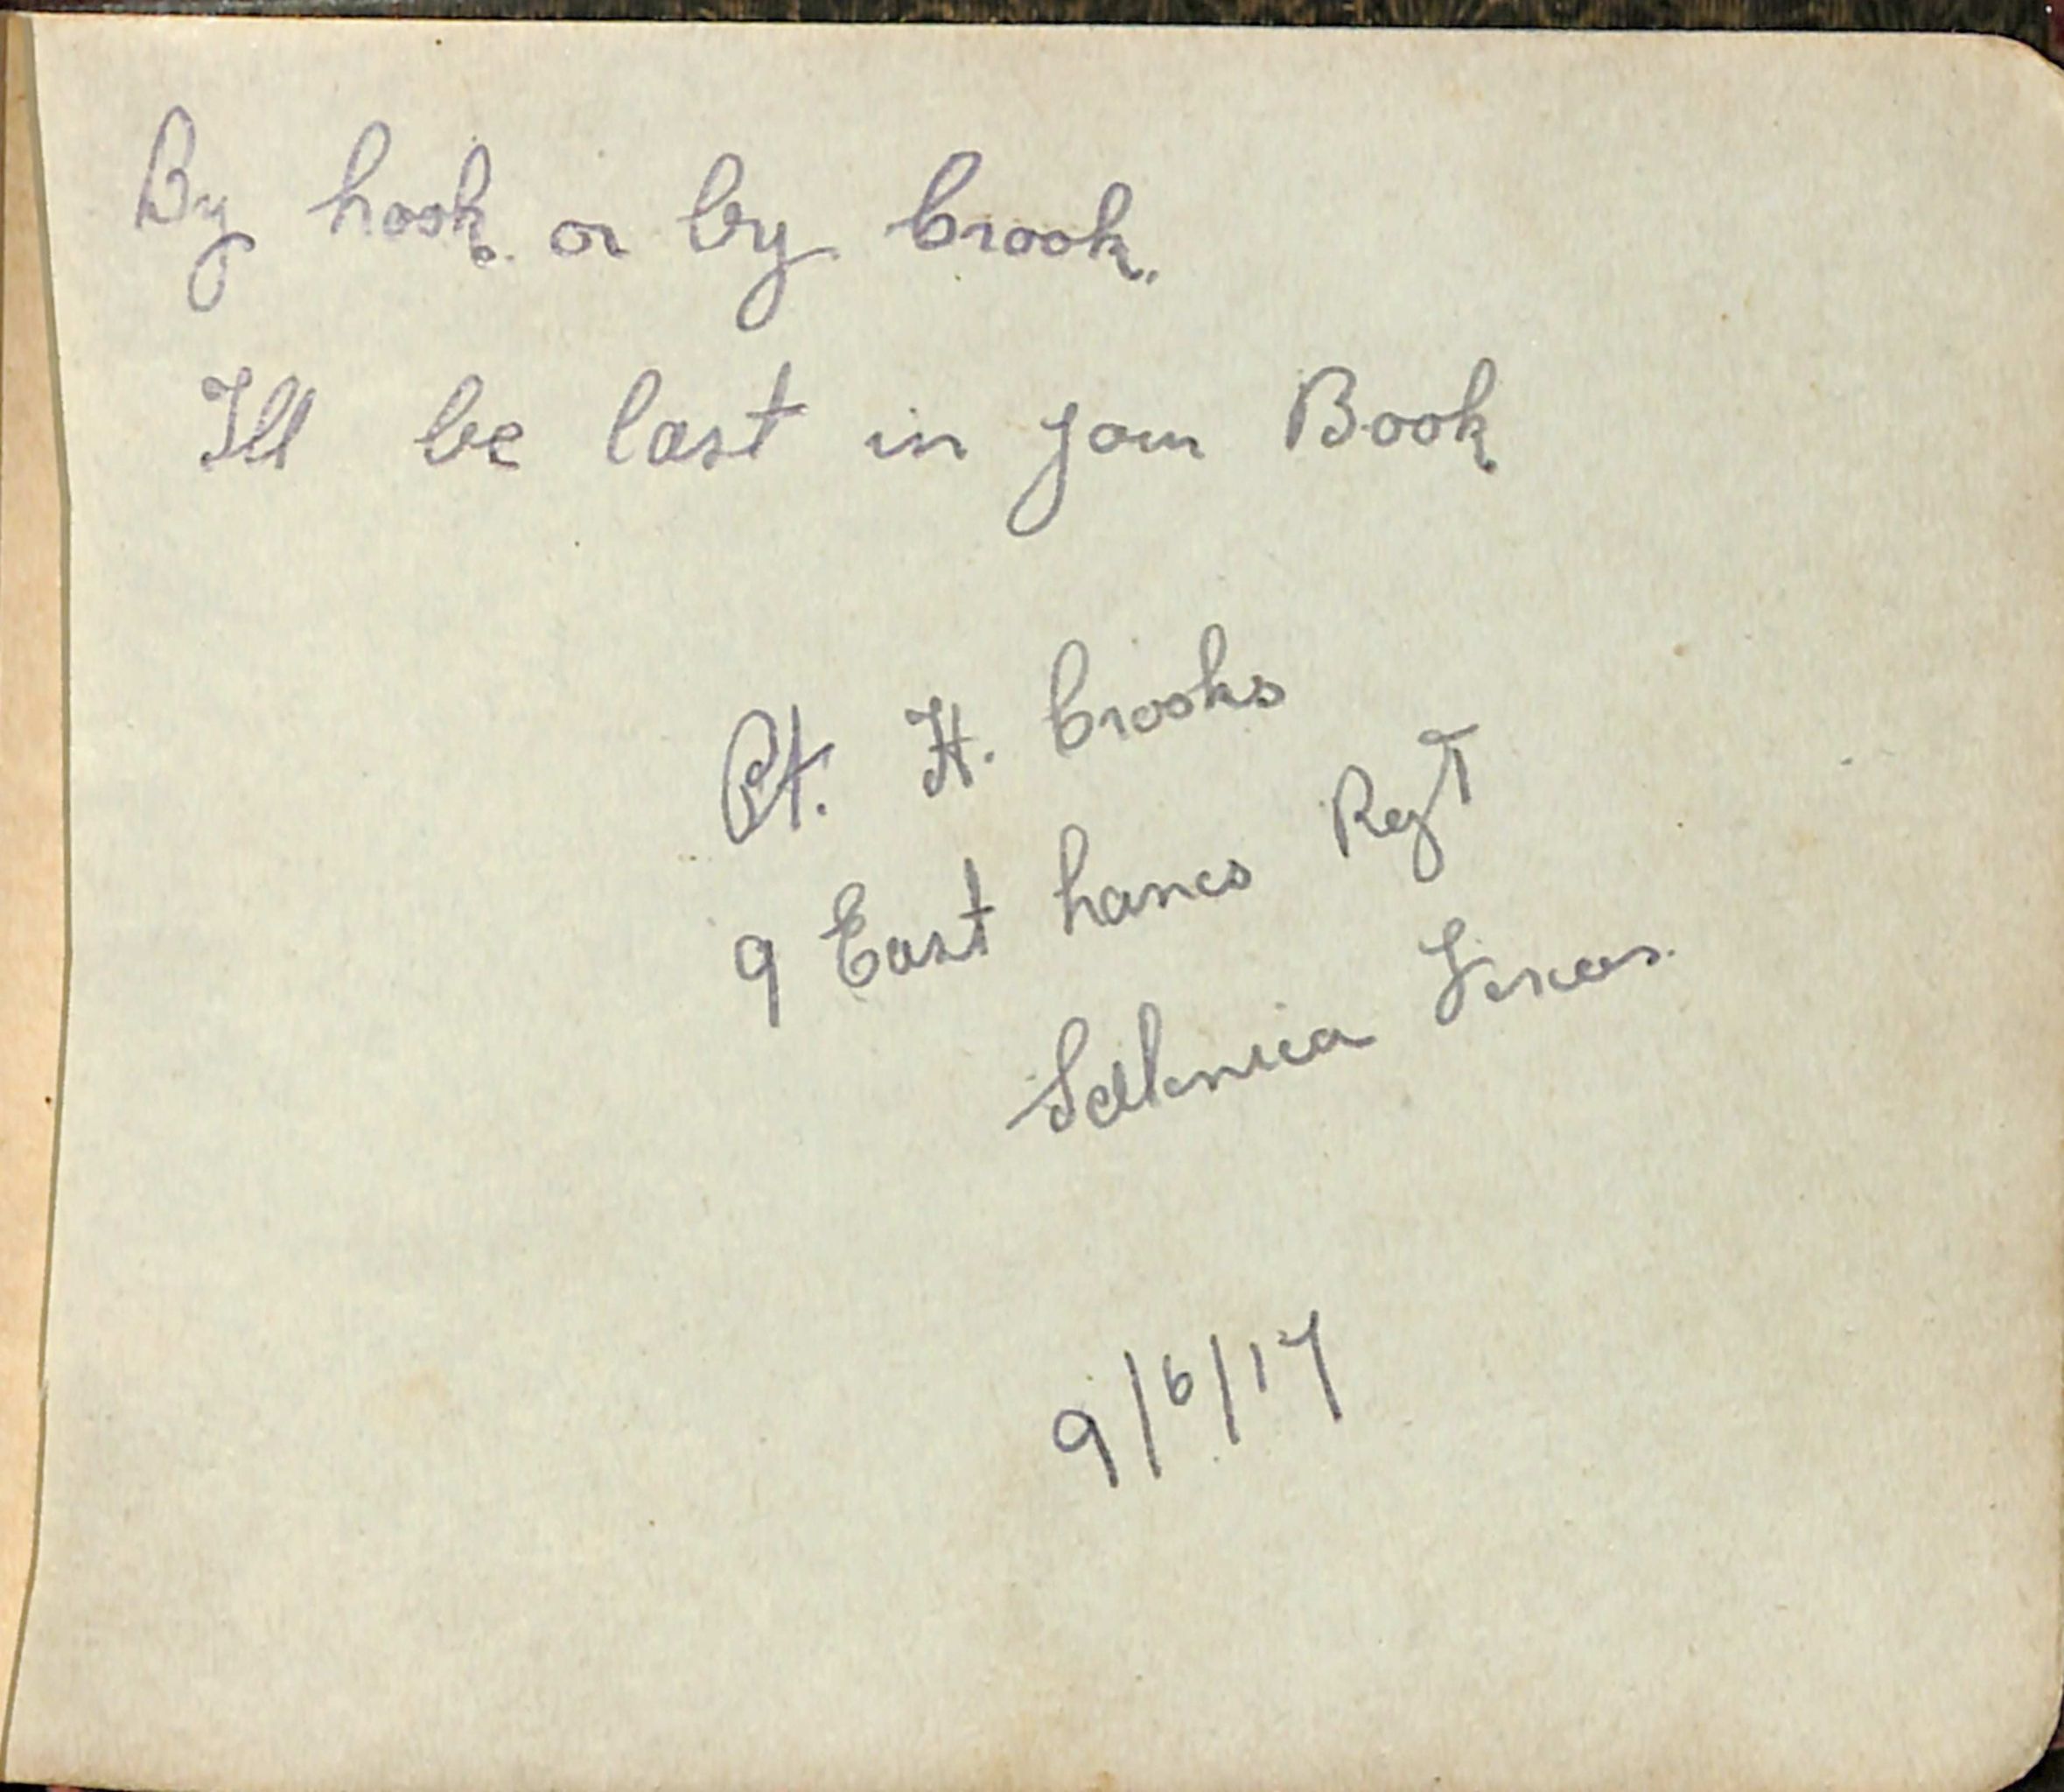 By hook. or by Crook.
I'll be last in your Book
Pt. H. Crooks
9 East Lancs RegT
Salonica Forces.
9/6/17